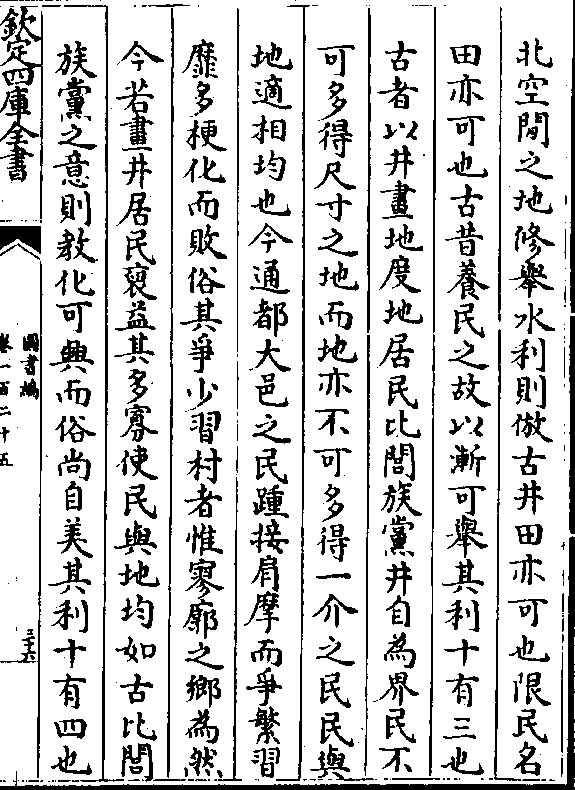 北空閒之地修舉水利則倣古井田亦可也限民名
田亦可也古昔養民之故以漸可舉其利十有三也
古者以井畫地度地居民比閭族黨井自為界民不
可多得尺寸之地而地亦不可多得一介之民民與
地適相均也今通都大邑之民踵接肩摩而爭繁習
靡多梗化而敗俗其爭少習村者惟寥廓之鄉為然
今若畫井居民裒益其多寡使民與地均如古比閭
族黨之意則教化可興而俗尚自美其利十有四也
欽定四庫全書
圖書編
卷一百二十五
三六